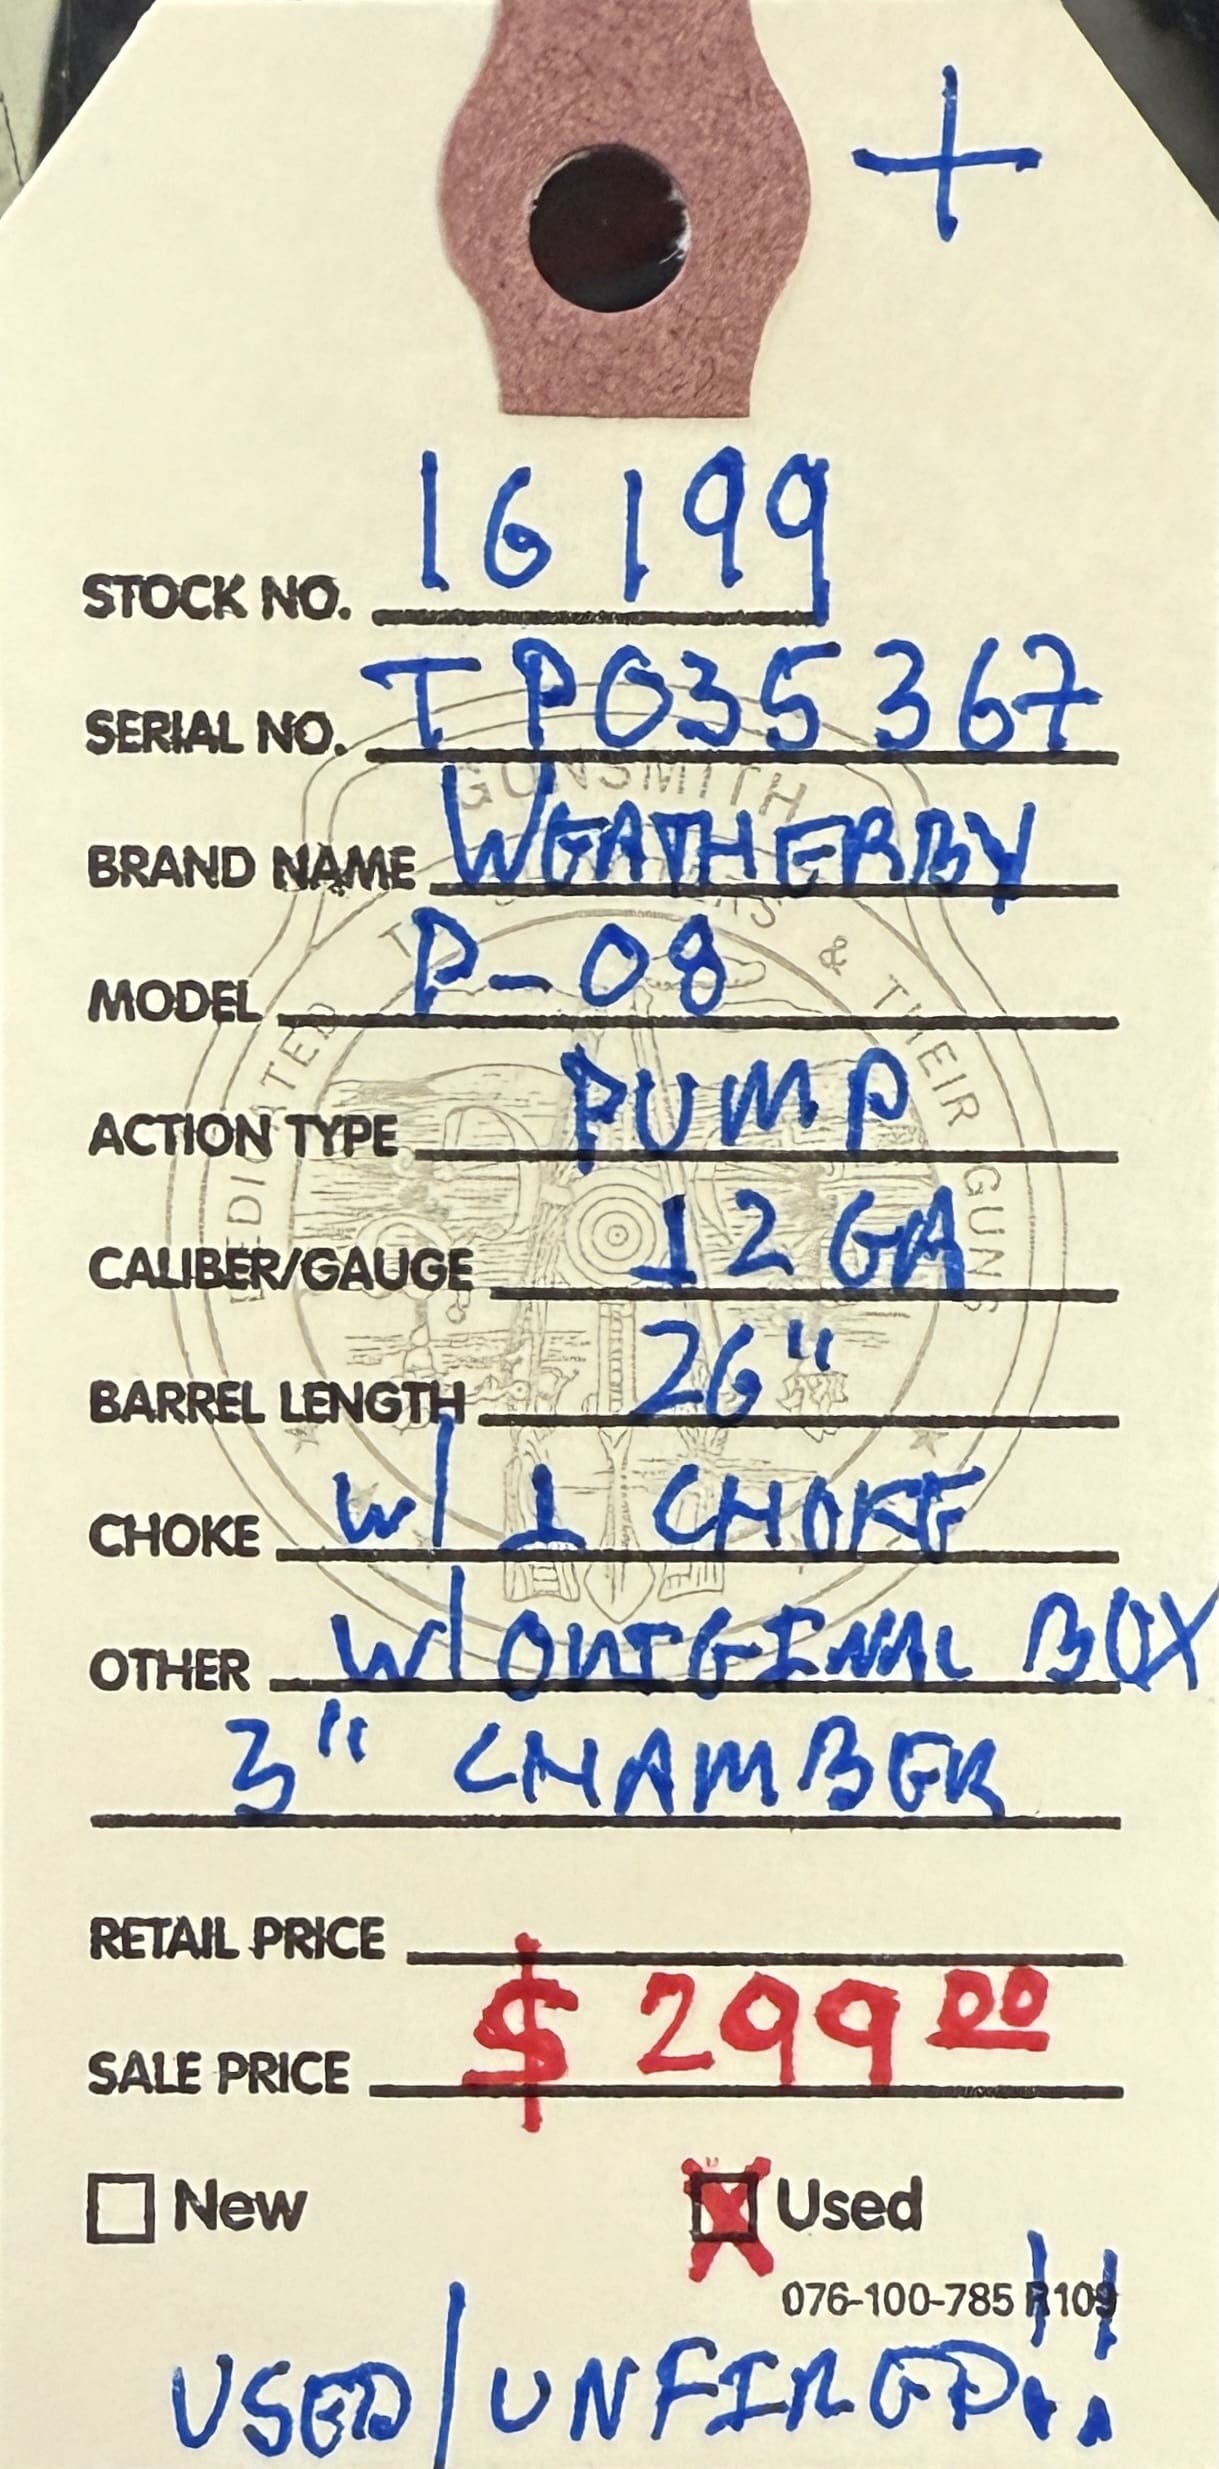 +
STOCK NO. 16199
SERIAL NO. TP035367
BRAND NAME WEATHERBY
MODEL P-08
ACTION TYPE PUMP
CALIBER/GAUGE 12 GA
BARREL LENGTH 26"
CHOKE W/ 1 CHOKE
OTHER W/ ORIGINAL BOX
3" CHAMBER
RETAIL PRICE
SALE PRICE $299.00
New X Used
076-100-785 R109
USED/UNFIRED!!
GUNSMITH
DEDICATED & THEIR GUNS